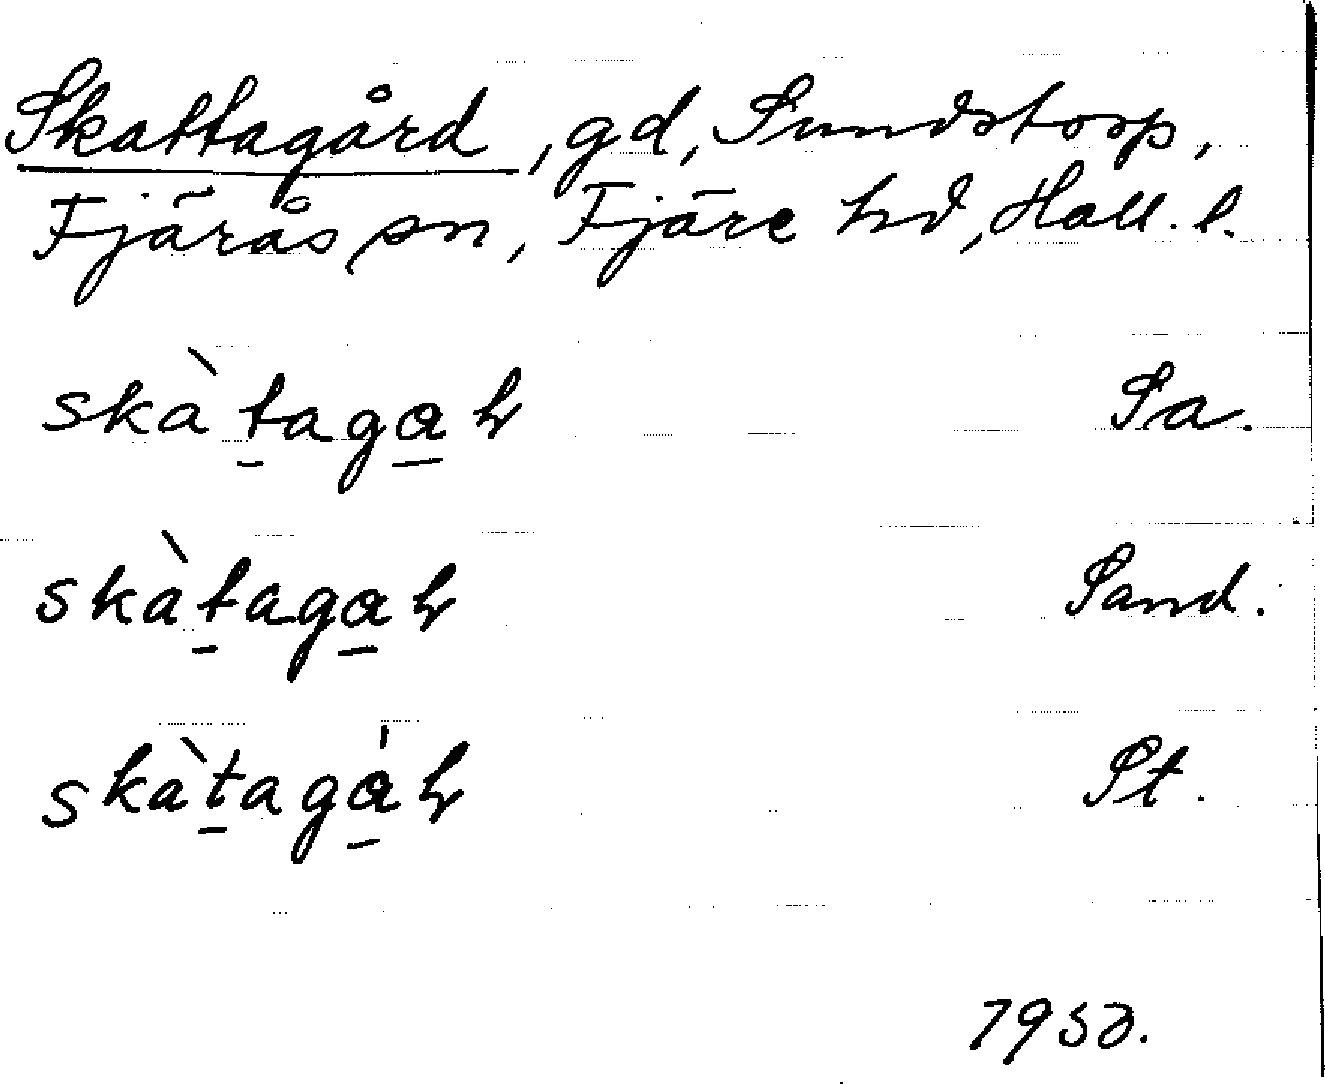 Skattagård, gd, Sundstorp,
Fjärås sn, Fjäre hd, Hall. l.
skàtagaɦ Sa.
skàtagaɦ Sand.
skàtagàɦ St.